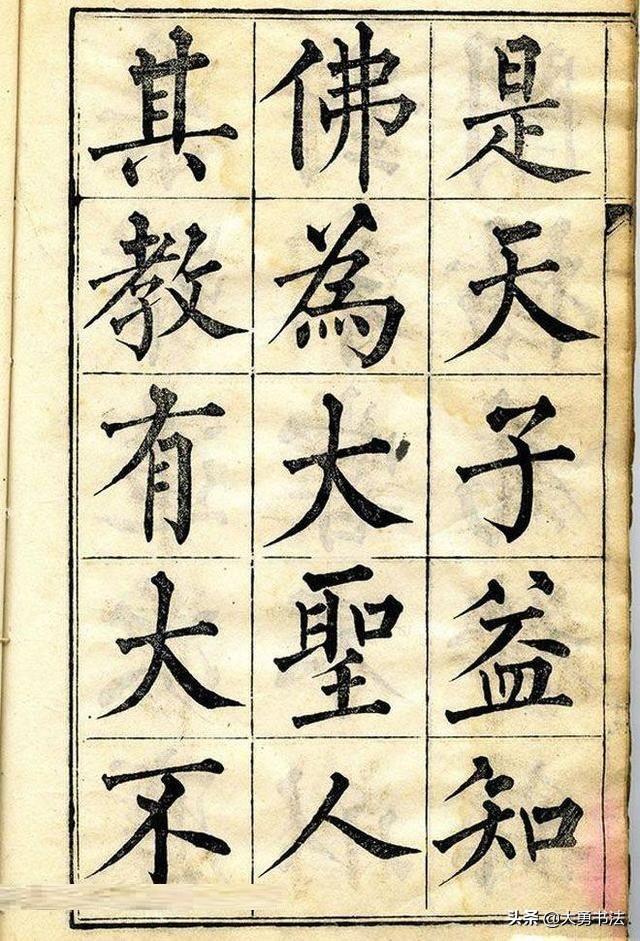 是天子益知
佛為大聖人
其教有大不
头条 @大勇书法